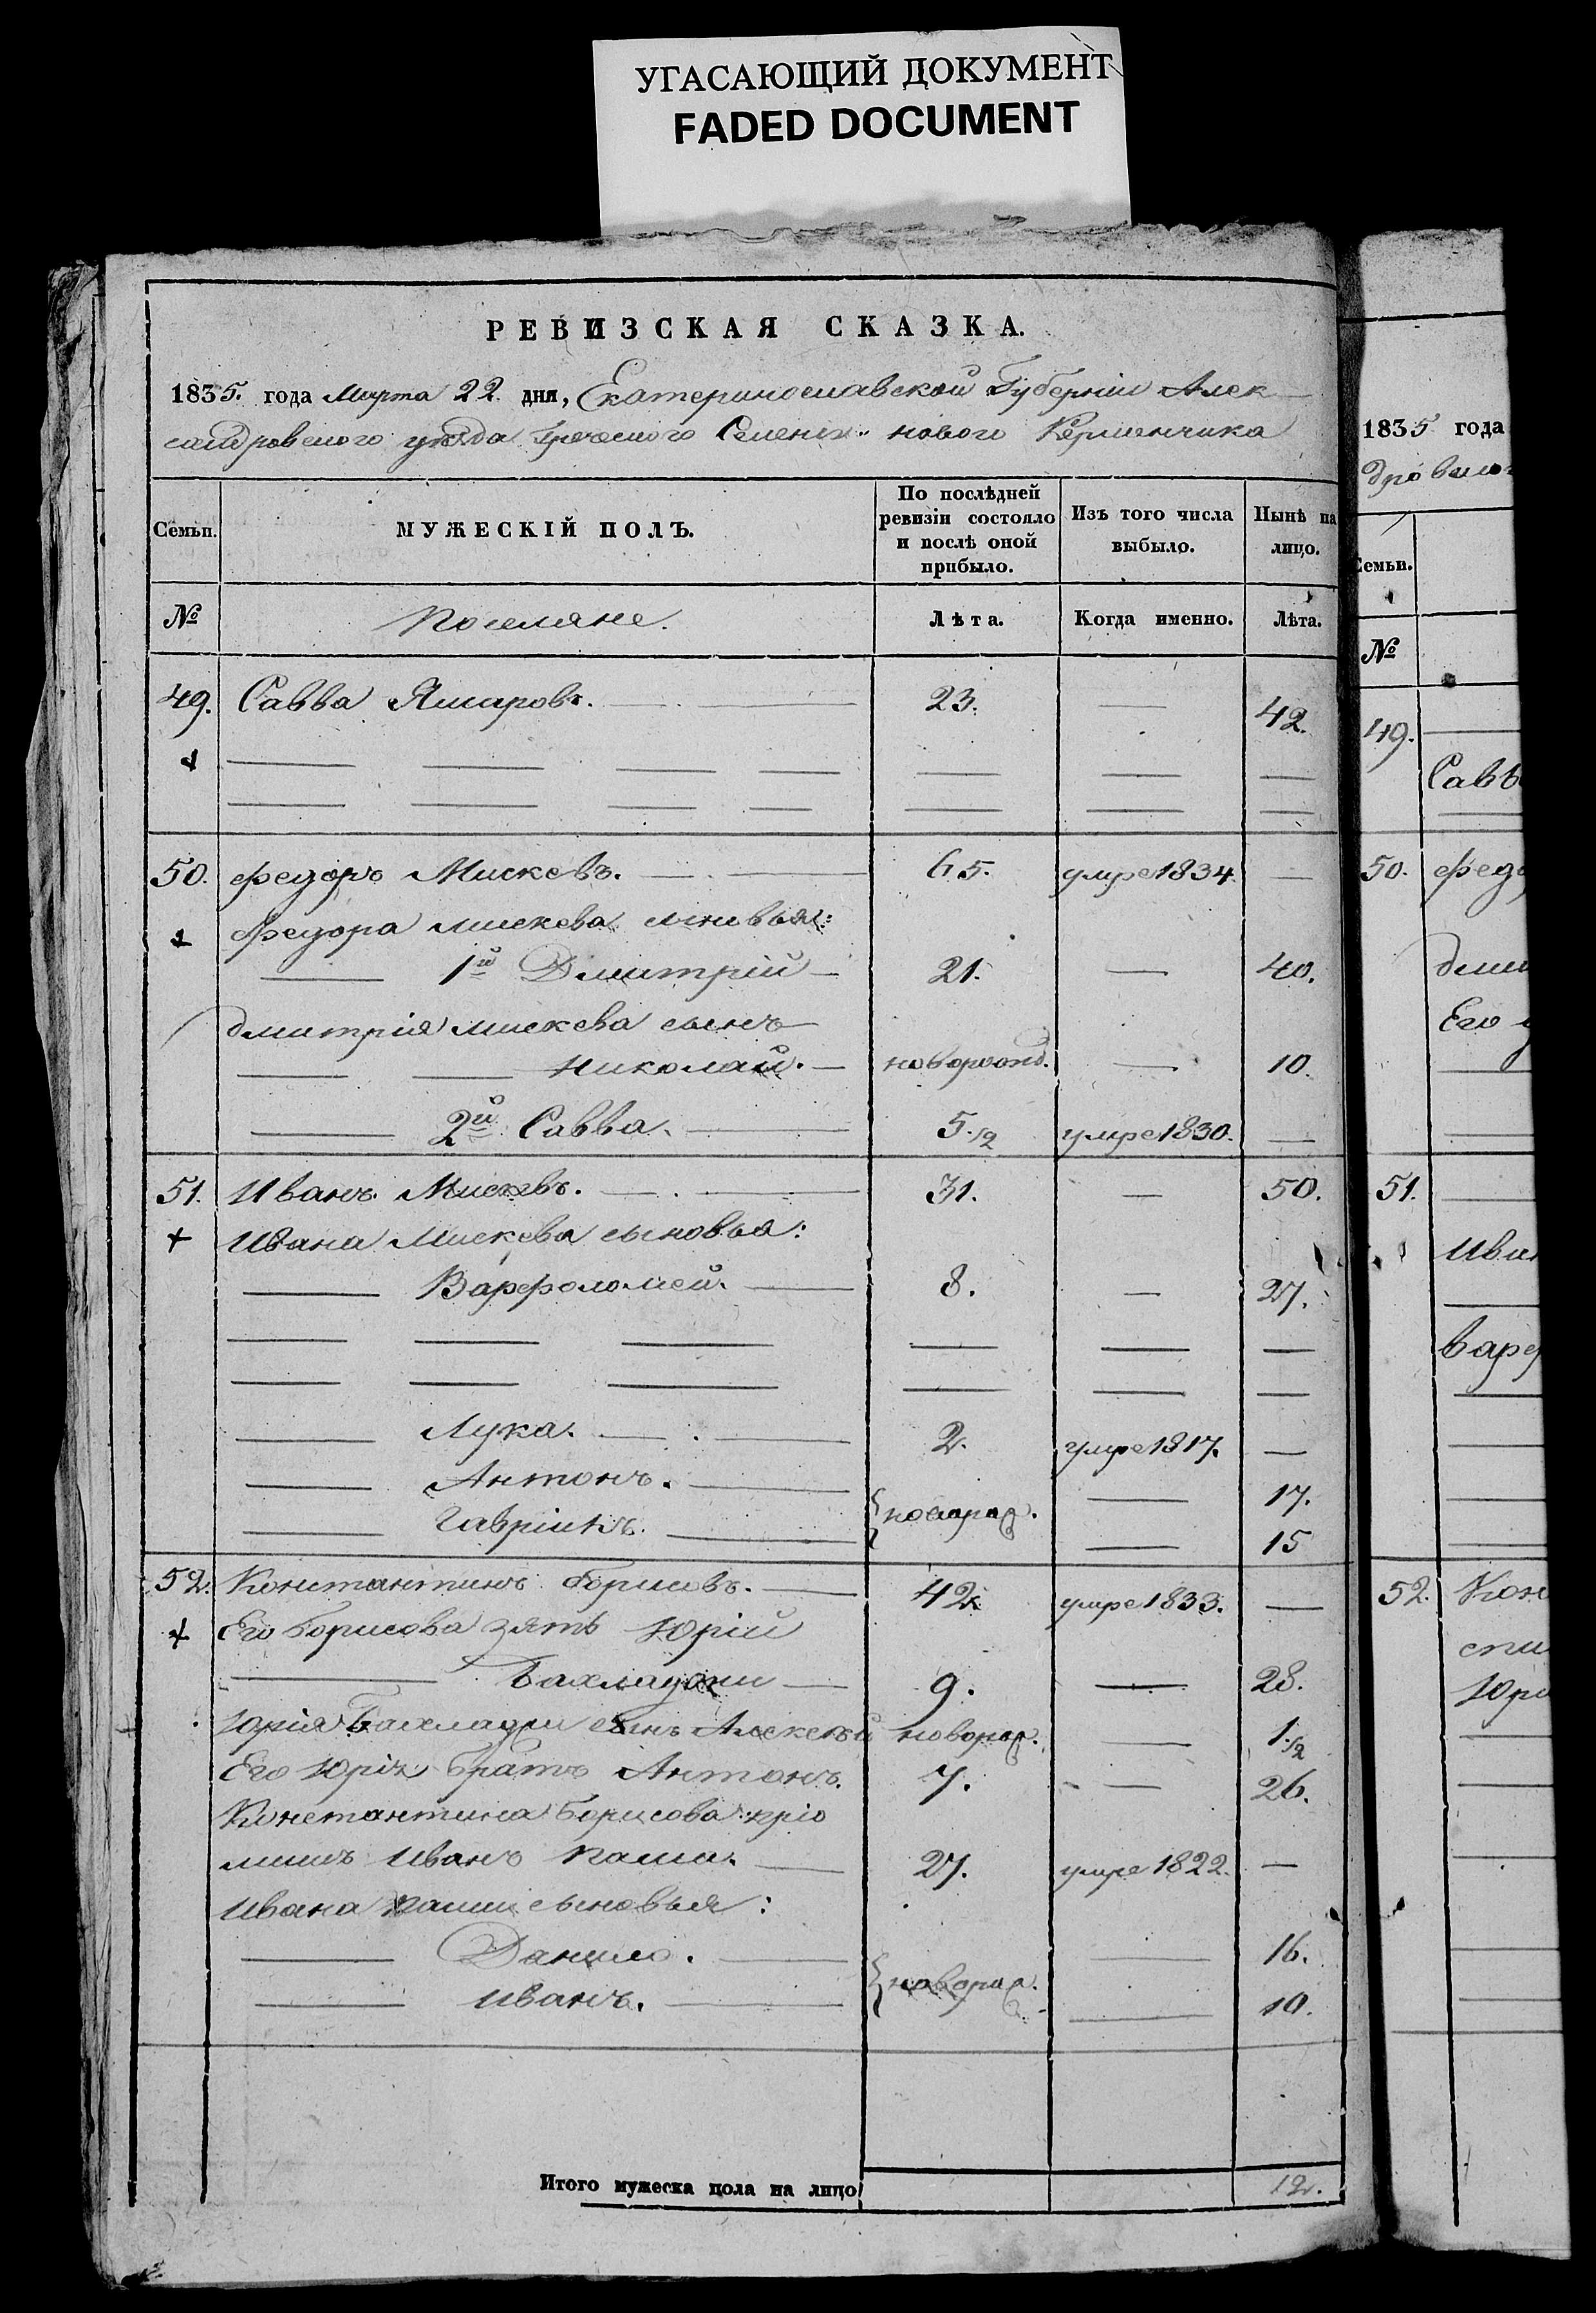 УГАСАЮЩИЙ ДОКУМЕНТ
FADED DOCUMENT
РЕВИЗСКАЯ СКАЗКА.
1835. года Марта 22 дня, Екатеринославской Губерніи Алек
сандровского уѣзда Греческого Селенія нового Керменчика
Семьи. МУЖЕСКІЙ ПОЛЪ. По послѣдней ревизіи состояло и послѣ оной прибыло. Изъ того числа выбыло. Нынѣ на лицо.
№ Поселяне. Лѣта. Когда именно. Лѣта.
49. Савва Ямаровъ. 23. 42.
50. Федоръ Мискевъ. 65. умре 1834
Федора Мискева сыновья:
1й Дмитрій 21. 40.
Дмитрія Мискева сынъ
Николай. новорожд. 10.
2й Савва. 5 1/2 умре 1830.
51. Иванъ Мискевъ. 31. 50.
Ивана Мискева сыновья:
Варфоломей. 8. 27.
Лука. 2. умре 1817.
Антонъ. 17.
новорож.
Гавріилъ. 15
52. Константинъ Борисовъ. 42 умре 1833.
Его Борисова зять Юрій
Бахладжи 9. 28.
Юрія Бахладжи сынъ Алексѣй новорож. 1 1/2
Его Юрія братъ Антонъ. 7. 26.
Константина Борисова пріо
мишъ Иванъ Паши. 27. умре 1822.
Ивана Паши сыновья:
Данило. 16.
новорож.
Иванъ. 10.
Итого мужеска пола на лицо 12.
1835 года
Семьи.
№
49.
Савв
50. Федо
Его
51.
Иван
Варф
52. Кон
Юрі